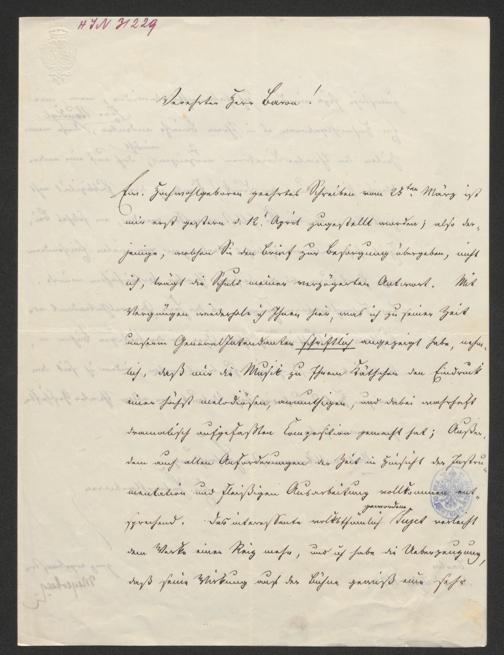 HIN 31229
Verehrter Herr Baron!
Ew. Hochwohlgeboren geehrtes Schreiben vom 25ten März ist
mir erst gestern d. 12t April zugestellt worden; also der-
jenige, welchem Sie den Brief zur Besorgung übergeben, nicht
ich, trägt die Schuld meiner verzögerten Antwort. Mit
Vergnügen wiederhole ich Ihnen hier, was ich zu seiner Zeit
unserm GeneralIntendanten schriftlich angezeigt habe, nehm-
lich, daß mir die Musik zu Ihrem Käthchen den Eindruck
einer höchst melodiösen, anmuthigen, und dabei wahrhaft
dramatisch aufgefaßten Composition gemacht hat; Außer-
dem auch allen Anforderungen der Zeit in Hinsicht der Instru-
mentation und fleißigen Ausarbeitung vollkommen ent-
sprechend. Das interessante volksthümlich gewordene Sujet verleiht
dem Werke einen Reiz mehr, und ich habe die Ueberzeugung,
daß seine Wirkung auf der Bühne gewiß eine sehr